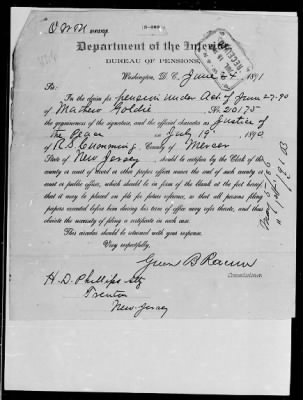 3-089
Department of the Interior,
BUREAU OF PENSIONS,
Washington, D. C., June 24, 1891
Sir:
In the claim for pension under Act of June 27-90
of Mathew Goldie No. 20175
the genuineness of the signature, and the official character as Justice of
the Peace on July 19th, 1890,
of R. S. , County of Mercer
State of New Jersey, should be certified by the Clerk of the
county or court of Record or other proper officer under the seal of such county or
court or public officer, which should be in form of the blank at the foot hereof
that it may be placed on file for future reference, so that all persons filing
papers executed before him during his term of office may refer thereto, and thus
obviate the necessity of filing a certificate in each case.
This circular should be returned with your response.
Very respectfully,
Green B Raum
Commissioner.
H. D. Phillips Atty
Trenton
New Jersey